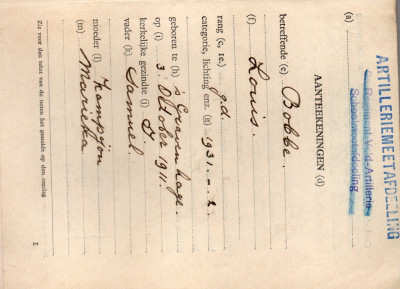 ARTILLERIEMEETAFDEELING
Regiment Veld-Artillerie
Schoolmeetafdeeling
(a)
AANTEEKENINGEN (d)
betreffende (e) Bobbe.
(f) Louis.
rang (c, 1e.) g.d.
categorie, lichting enz. (g) 1931.-.2.
geboren te (h) 's Gravenhage.
op (i) 3 Oktober 1911.
kerkelijke gezindte (i) I.
vader (k) Samuel.
moeder (l) Kampijn
(m) Marietta.
Zie voor den tekst van de noten het gestelde op den omslag
I.